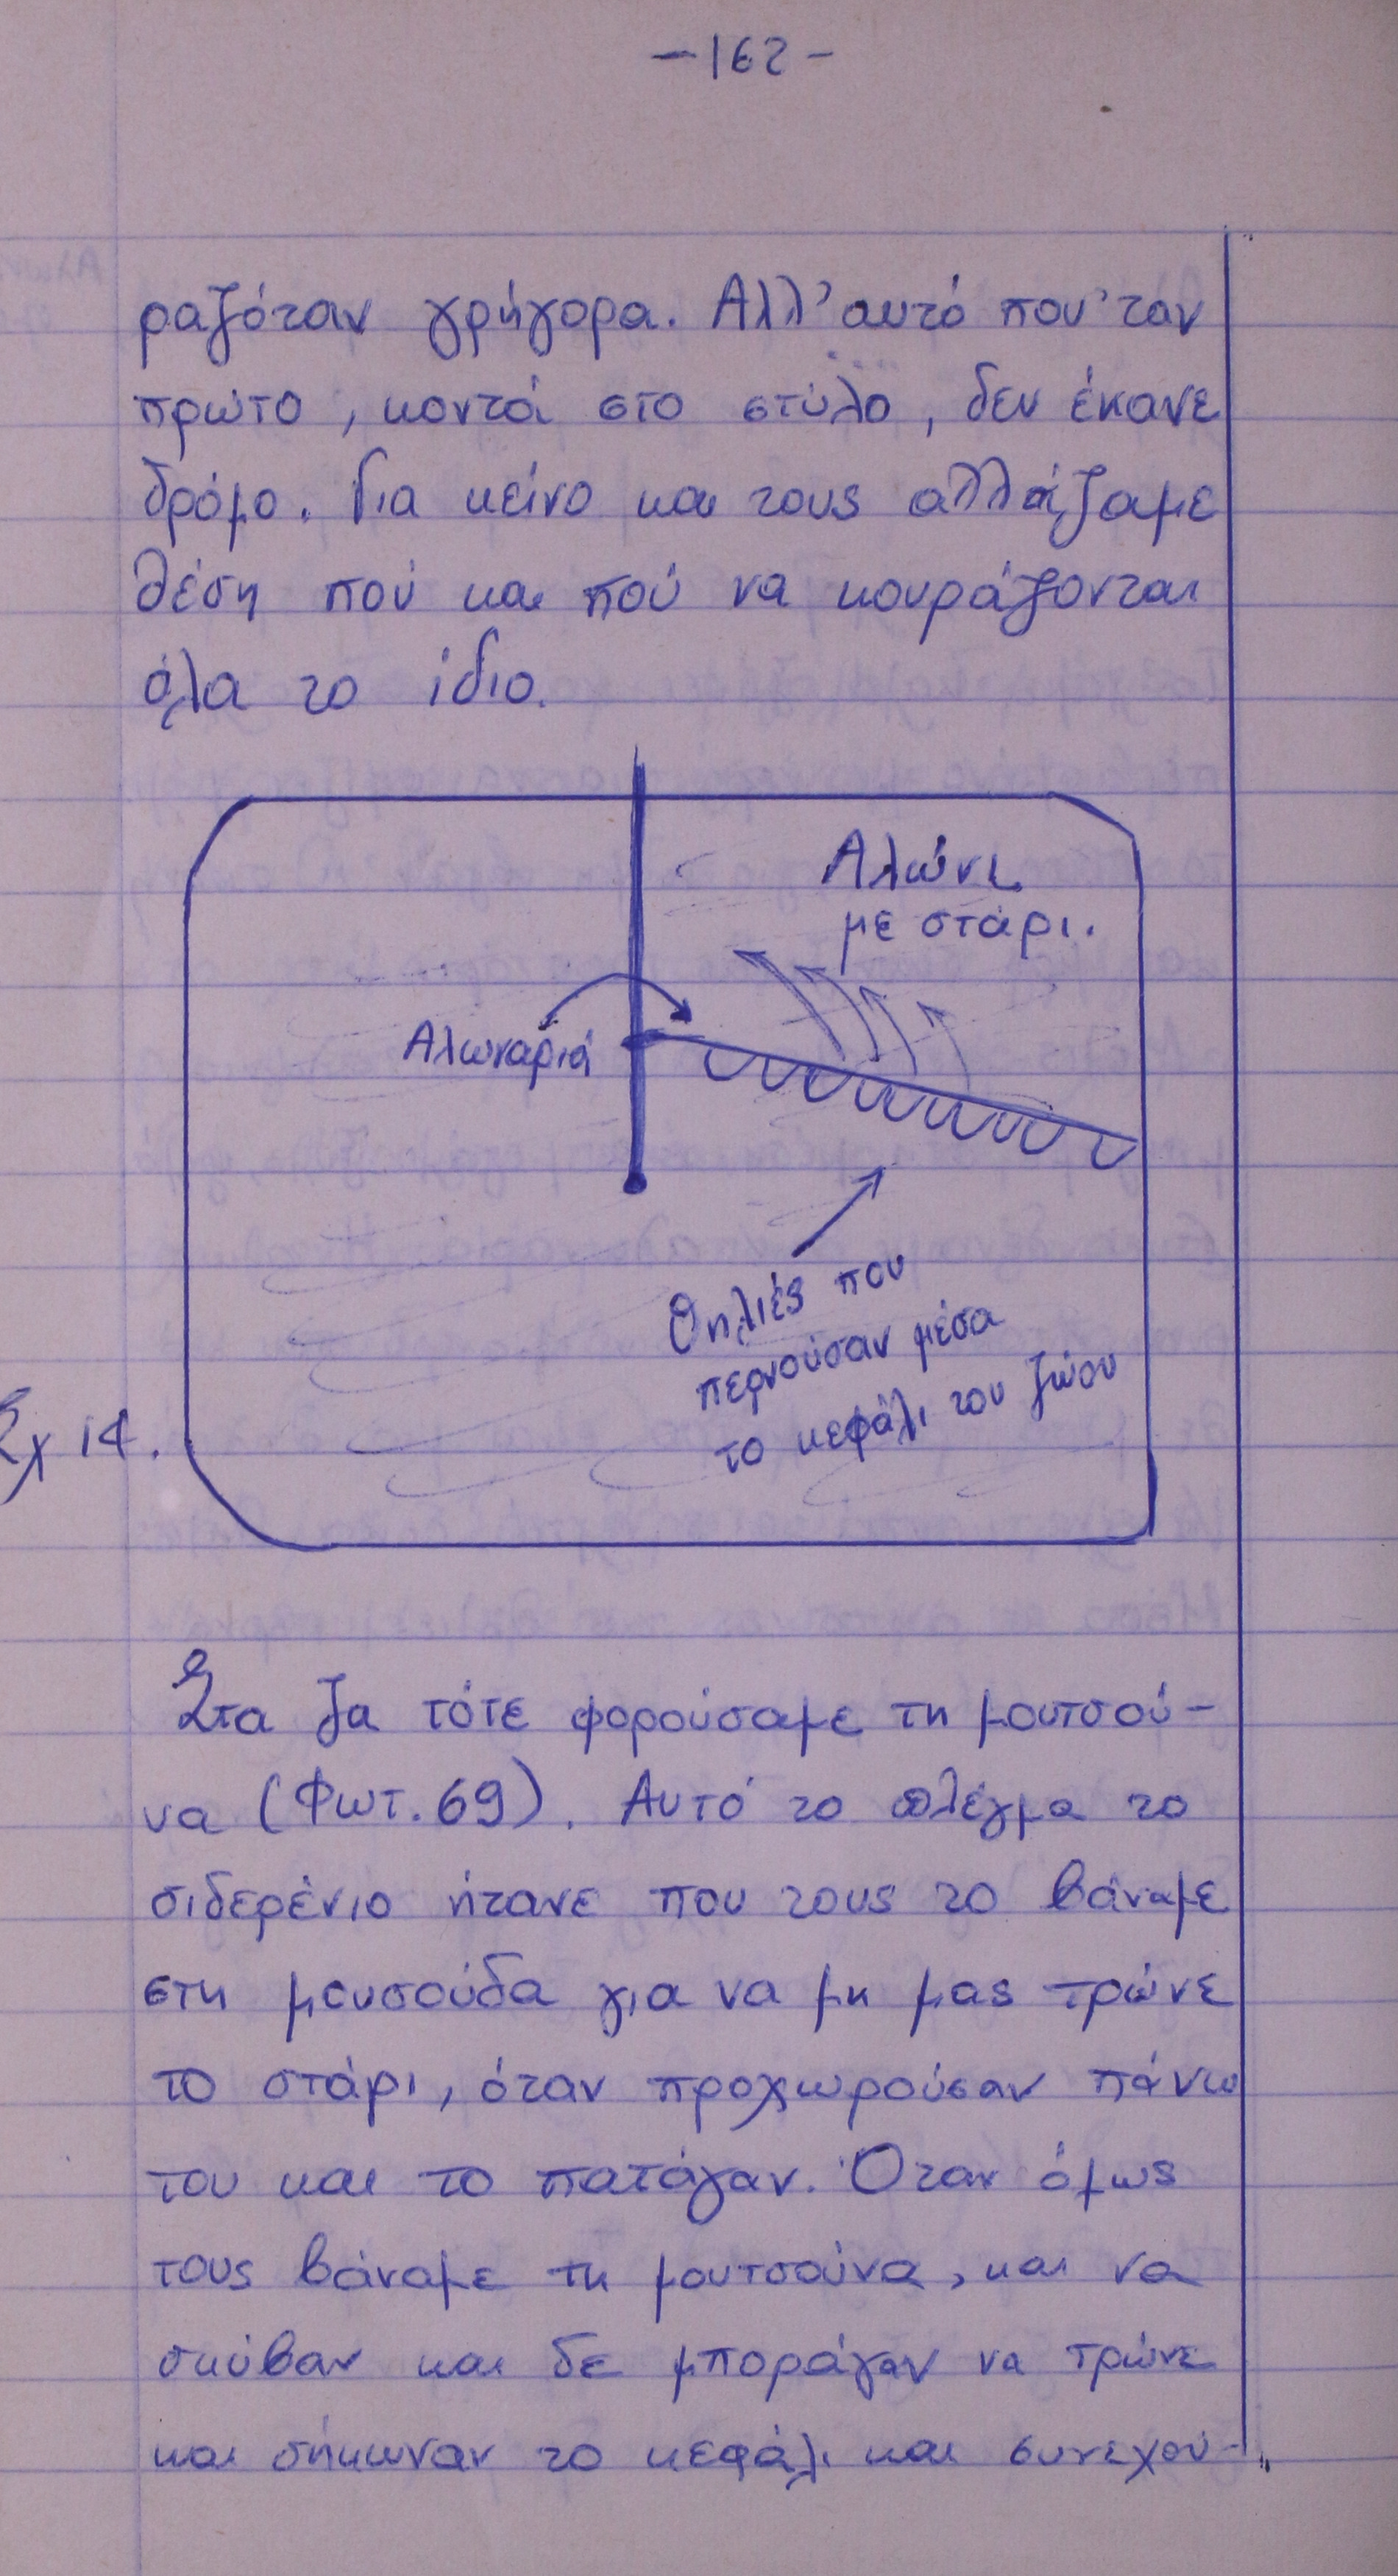 -162-
ραζόταν γρήγορα. Αλλ' αυτό που 'ταν
πρώτο, κοντά στο στύλο, δεν έκανε
δρόμο. Για κείνο και τους αλλάζαμε
θέση πού και πού να κουράζονται
όλα το ίδιο.
Αλώνι
με στάρι.
Αλωναριά
Θηλιές που
περνούσαν μέσα
το κεφάλι του ζώου
Σχ 14.
Στα ζα τότε φορούσαμε τη μουτσού-
να (Φωτ. 69). Αυτό το πλέγμα το
σιδερένιο ήτανε που τους το βάναμε
στη μουσούδα για να μη μας τρώνε
το στάρι, όταν προχωρούσαν πάνω
του και το πατάγαν. Όταν όμως
τους βάναμε τη μουτσούνα, και να
σκύβαν και δε μποράγαν να τρώνε
και σήκωναν το κεφάλι και συνεχού-